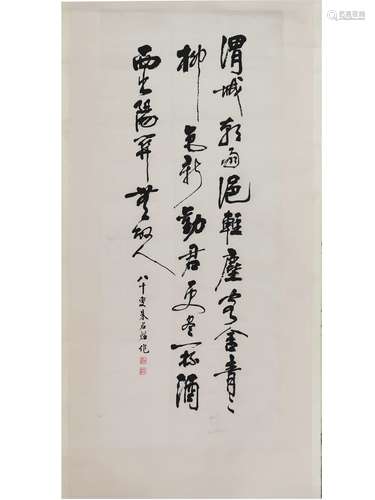 渭城朝雨浥輕塵客舍青々
柳色新勸君更尽一杯酒
西出陽關無故人
八十叟朱石作
易拍全球